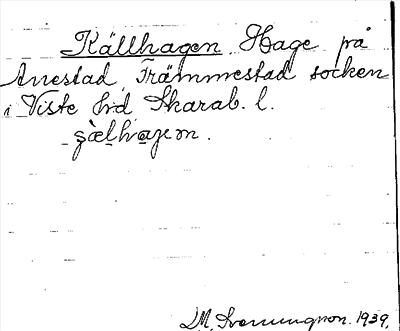 Källhagen Hage på
Anestad Främmestad socken
i Viste hrd Skarab. l.
L.M. Svenungsson. 1939.